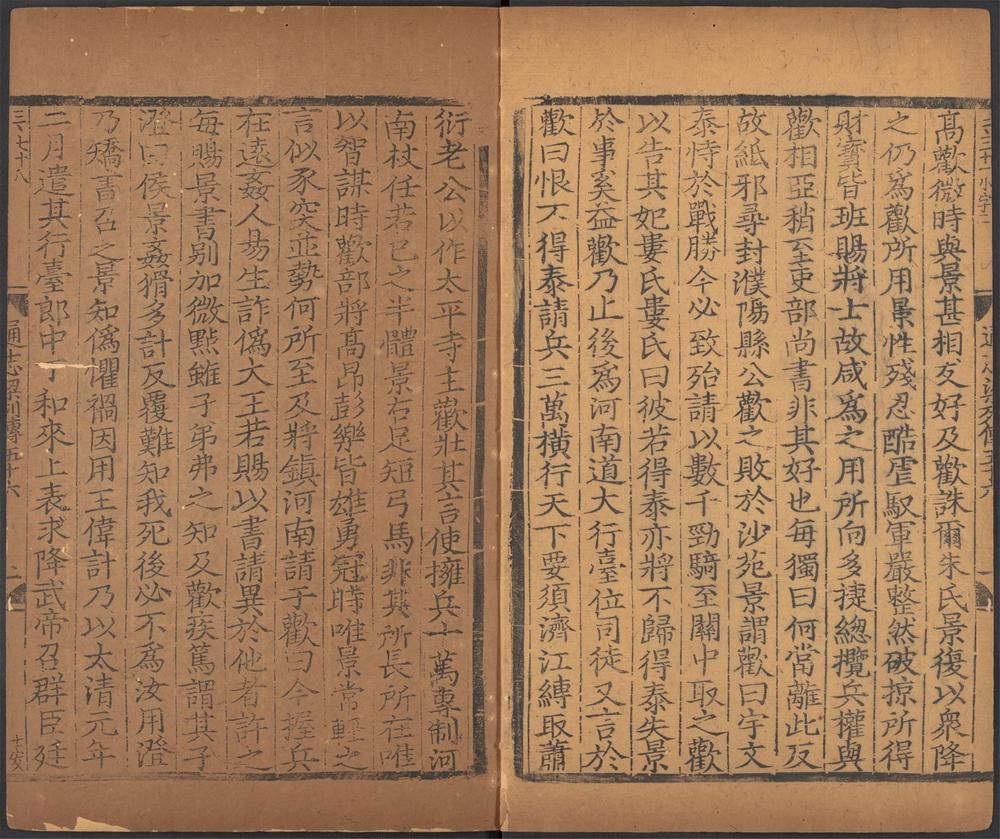 高歡微時與景甚相友好及歡誅爾朱氏景復以衆降
之仍爲歡所用景性殘忍酷虐馭軍嚴整然破掠所得
財寶皆班賜將士故咸爲之用所向多捷總攬兵權與
歡相亞稍至吏部尚書非其好也每獨曰何當離此反
故紙邪尋封濮陽縣公歡之敗於沙苑景謂歡曰宇文
泰恃於戰勝今必致殆請以數千勁騎至關中取之歡
以告其妃婁氏婁氏曰彼若得泰亦將不歸得泰失景
於事奚益歡乃止後爲河南道大行臺位司徒又言於
歡曰恨不得泰請兵三萬橫行天下要須濟江縛取蕭
衍老公以作太平寺主歡壯其言使擁兵十萬專制河
南杖任若己之半體景右足短弓馬非其所長所在唯
以智謀時歡部將高昂彭樂皆雄勇冠時唯景常輕之
言似豕突並勢何所至及將鎮河南請于歡曰今握兵
在遠姦人易生詐僞大王若賜以書請異於他者許之
每賜景書別加微點雖子弟弗之知及歡疾篤謂其子
澄曰侯景姦猾多計反覆難知我死後必不爲汝用澄
乃矯書召之景知僞懼禍因用王偉計乃以太清元年
二月遣其行臺郎中丁和來上表求降武帝召群臣廷
三七十八
通志梁列傳五十六
二